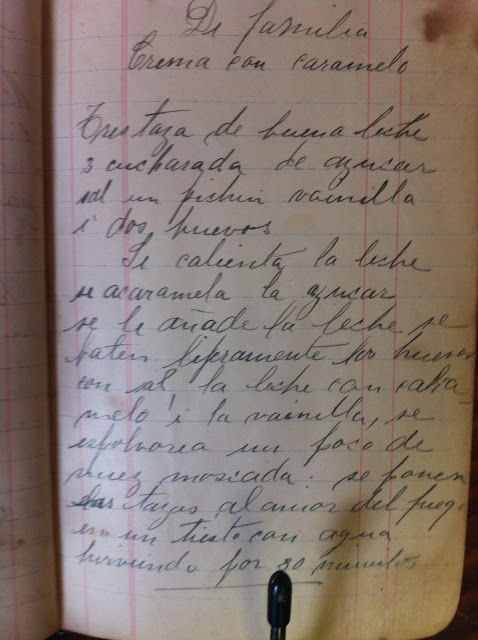 De familia
Crema con caramelo
Tres taza de buena leche
3 cucharada de azucar
sal un pichin vainilla
i dos huevos
Se calienta la leche
se acaramela la azucar
se le añade la leche se
baten lijeramente los huevos
con sal, la leche con cara-
melo i la vainilla, se
espolvorea un poco de
nuez moscada. se ponen
las tazas al amor del fuego
en un tiesto con agua
hirviendo por 30 minutos